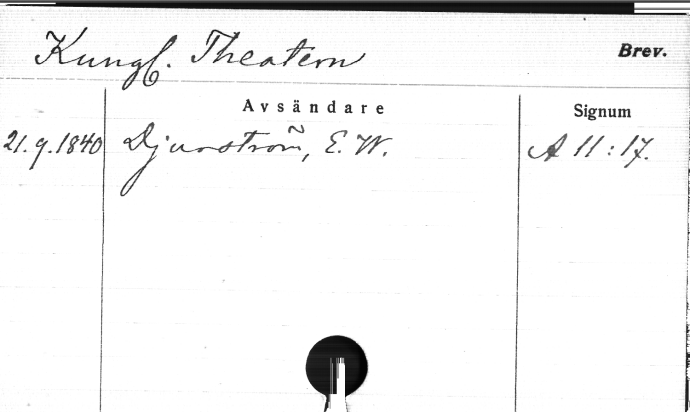 Kungl. Theatern
Brev.
Avsändare
Signum
21.9.1840 Djurström, E. W. A 11:17.